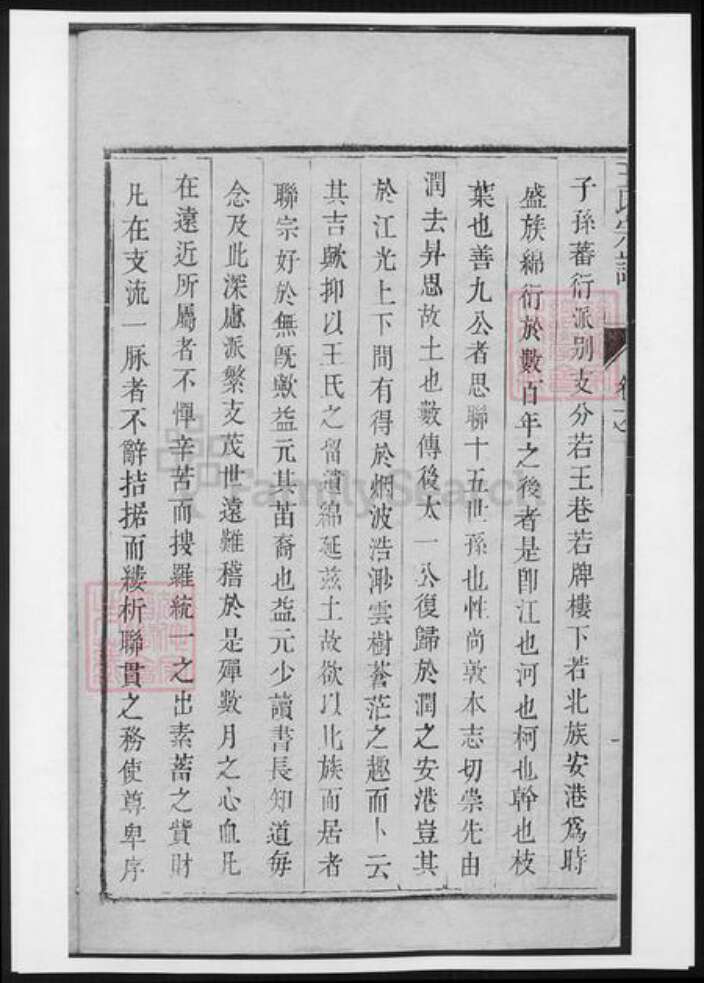 王氏宗譜
子孫蕃衍派別支分若王巷若牌樓下若北族安港爲時
盛族綿衍於數百年之後者是卽江也河也柯也幹也枝
葉也善九公者思聯十五世孫也性尚敦本志切崇先由
潤去昇思故土也數傳後太一公復歸於潤之安港豈其
於江光上下間有得於烟波浩渺雲樹蒼茫之趣而卜云
其吉歟抑以王氏之留遺綿延茲土故欲以比族而居者
聯宗好於無旣歟益元其苗裔也益元少讀書長知道每
念及此深慮派繁支茂世遠難稽於是殫數月之心血凡
在遠近所屬者不憚辛苦而搜羅統一之出素蓄之貲財
凡在支流一脉者不辭拮据而縷析聯貫之務使尊卑序
FamilySearch